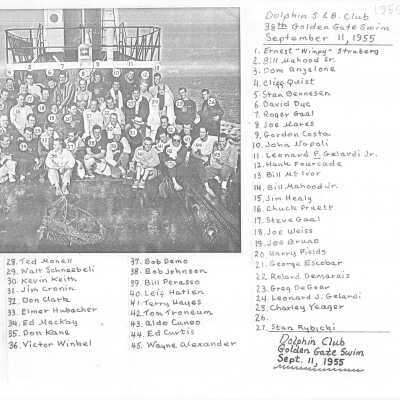 1955
Dolphin S & B. Club
38th Golden Gate Swim
September 11, 1955
1. Ernest "Winpy" Straberg
2. Bill Mahood Sr.
3. Dom Anzalone
4. Cliff Quist
5. Stan Bennesen
6. David Dye
7. Roger Gaal
8. Joe Mares
9. Gordon Costa
10. John Napoli
11. Leonard P. Gelardi Jr.
12. Hank Fourcade
13. Bill McIvor
14. Bill Mahood Jr.
15. Jim Healy
16. Chuck Pruett
17. Steve Gaal
18. Joe Weiss
19. Joe Bruno
20. Harry Fields
21. George Escobar
22. Roland Demarais
23. Greg DeGear
24. Leonard J. Gelardi
25. Charley Yeager
26.
27. Stan Rubicki
28. Ted Monell
29. Walt Schneebeli
30. Kevin Keith
31. Jim Cronin
32. Don Clark
33. Elmer Hubacher
34. Ed MacKay
35. Don Kane
36. Victor Winkel
37. Bob Demo
38. Bob Johnson
39. Bill Perasso
40. Leif Hatlen
41. Terry Hayes
42. Tom Troneum
43. Aldo Cuneo
44. Ed Curtis
45. Wayne Alexander
Dolphin Club
Golden Gate Swim
Sept. 11, 1955